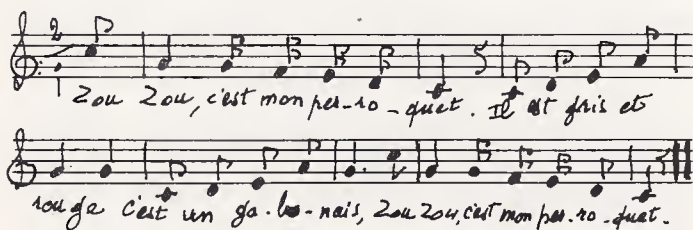 2
Zou Zou, c'est mon per-ro-quet. Il est gris et
rouge c'est un ga-bo-nais, Zou Zou, c'est mon per-ro-quet.